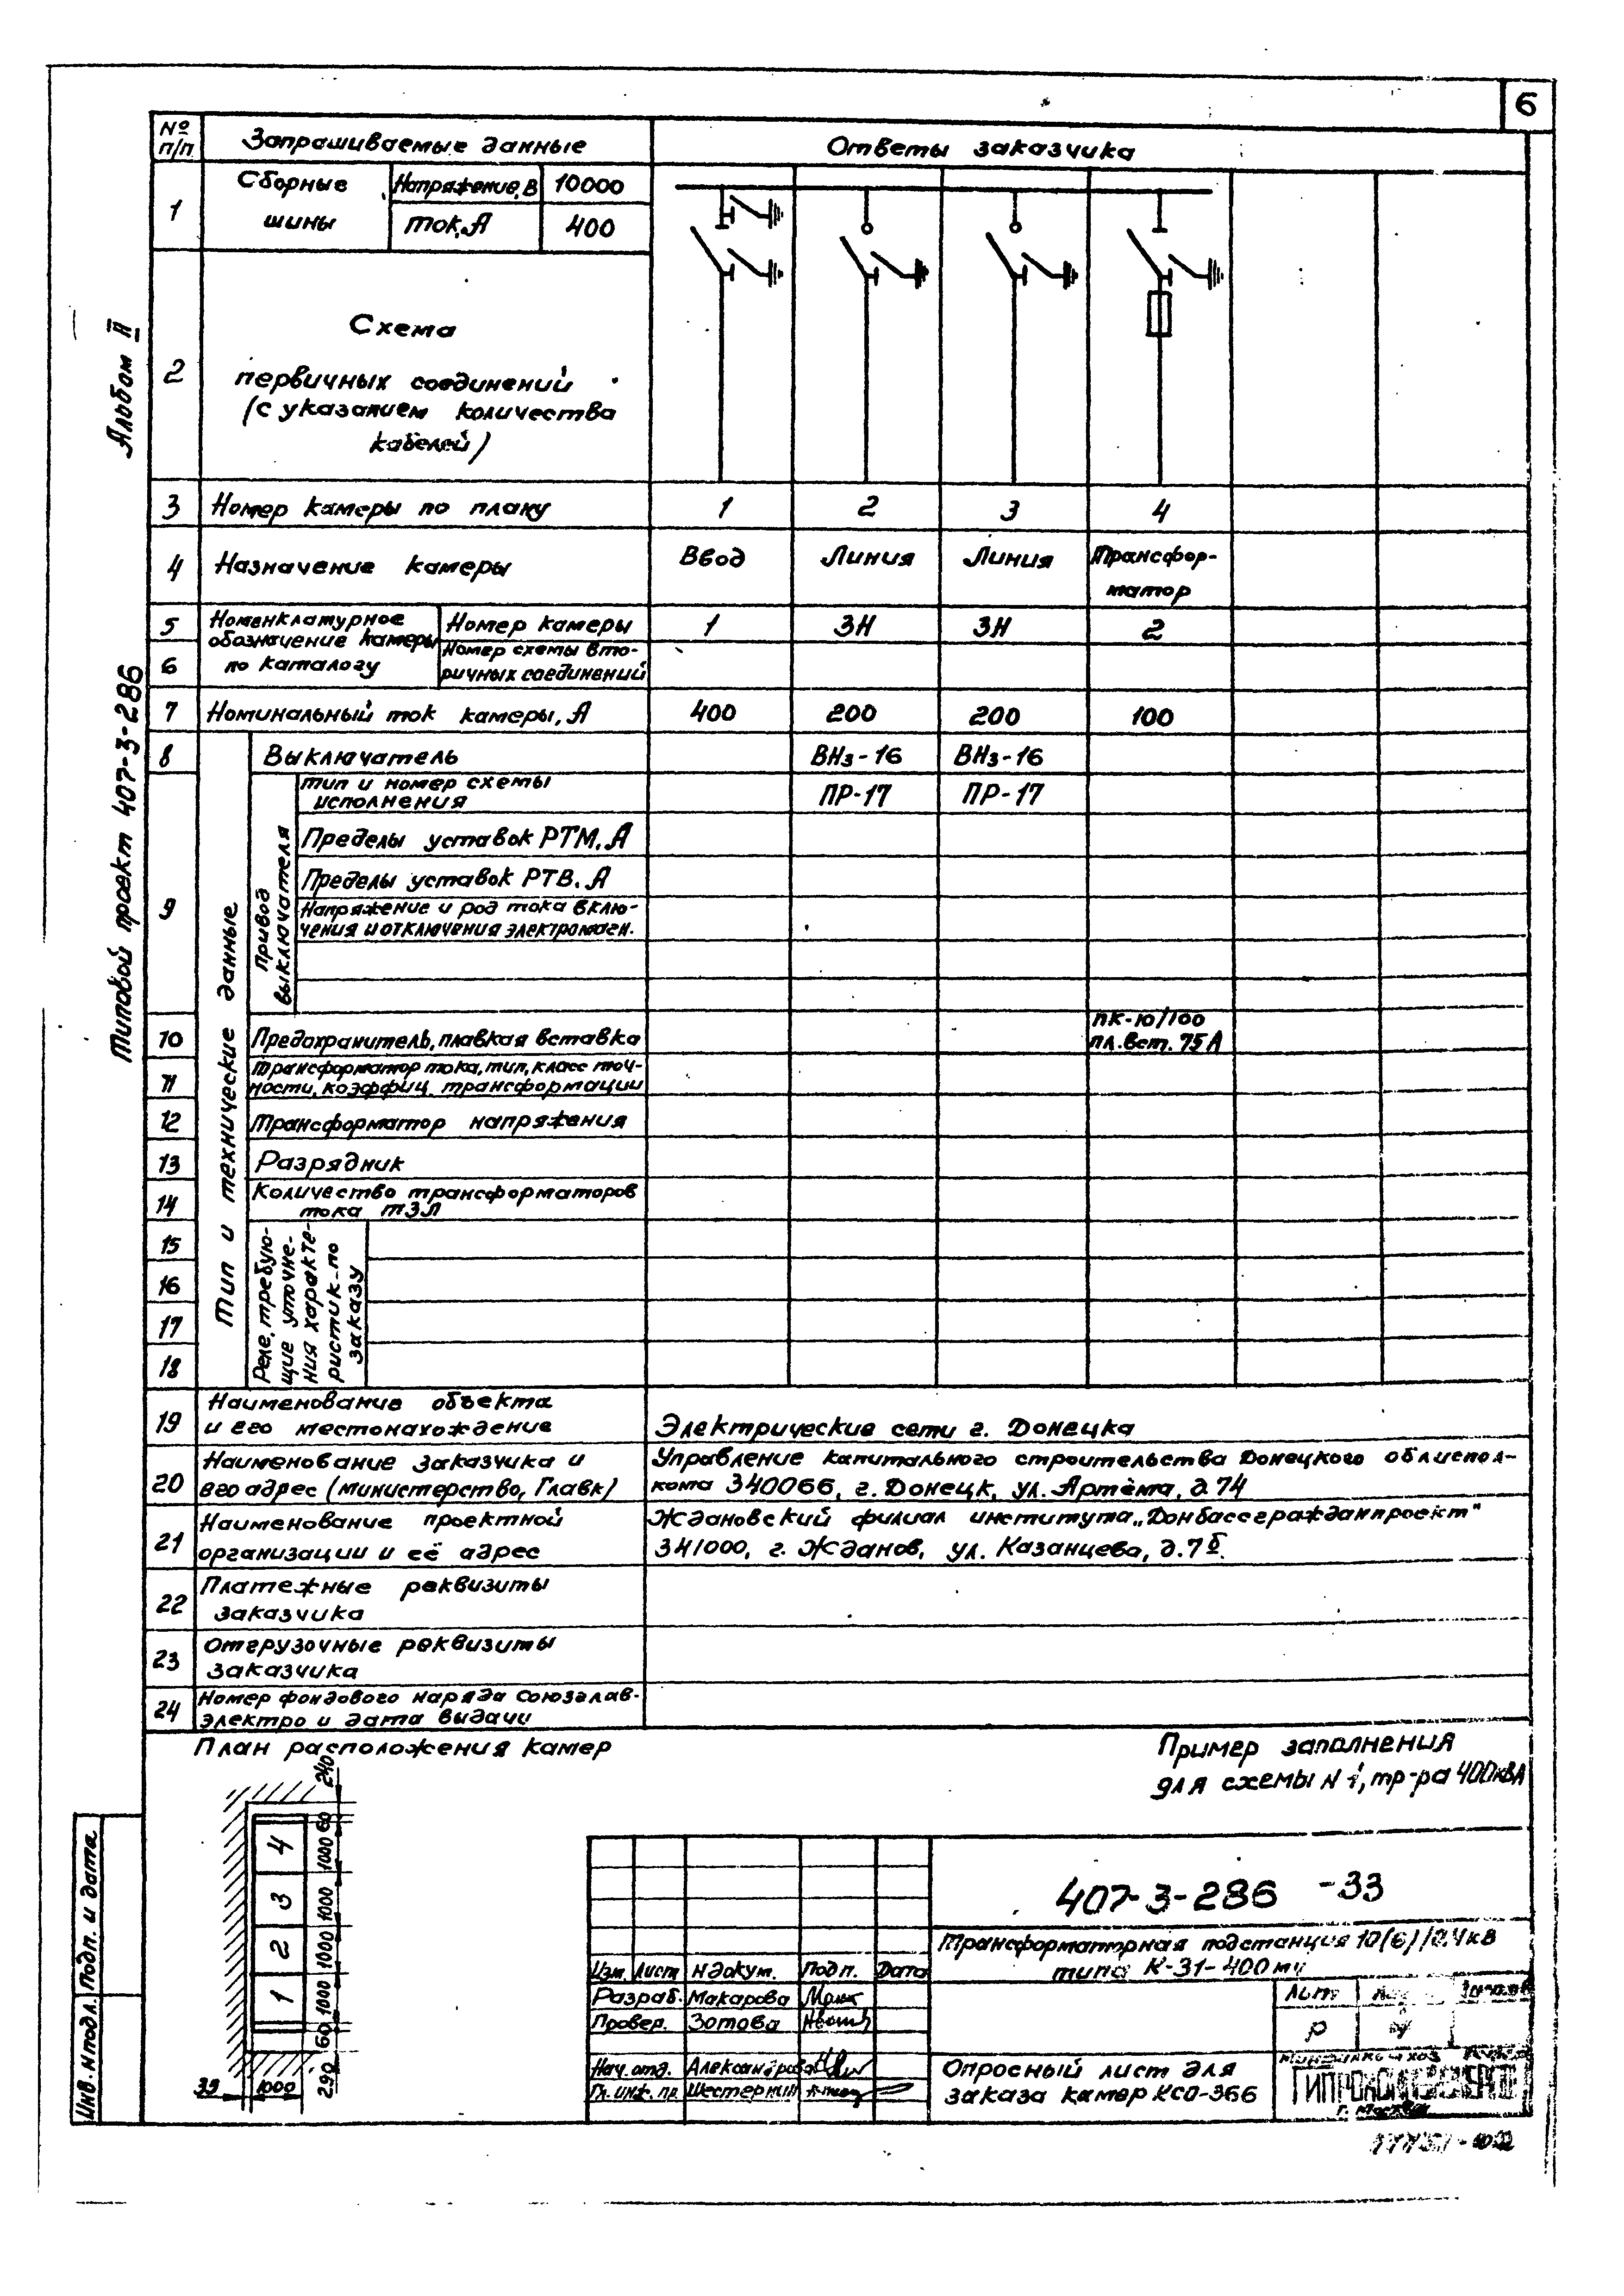 6
№ п/п
Запрашиваемые данные
Ответы заказчика
1
Сборные шины
Напряжение, В
10000
Ток, А
400
2
Схема
первичных соединений
(с указанием количества
кабелей)
3
Номер камеры по плану
1
2
3
4
4
Назначение камеры
Ввод
Линия
Линия
Трансфор-
матор
5
Номенклатурное
обозначение камеры
по каталогу
Номер камеры
1
3Н
3Н
2
6
Номер схемы вто-
ричных соединений
7
Номинальный ток камеры, А
400
200
200
100
Тип и технические данные
8
Выключатель
ВНз-16
ВНз-16
9
Привод
выключателя
Тип и номер схемы
исполнения
ПР-17
ПР-17
Пределы уставок РТМ, А
Пределы уставок РТВ, А
Напряжение и род тока вклю-
чения и отключения электромагн.
10
Предохранитель, плавкая вставка
ПК-10/100
пл.вст. 75А
11
Трансформатор тока, тип, класс точ-
ности, коэффиц. трансформации
12
Трансформатор напряжения
13
Разрядник
14
Количество трансформаторов
тока ТЗЛ
15
16
17
18
Реле, требую-
щие уточне-
ния характе-
ристик по
заказу
19
Наименование объекта
и его местонахождение
Электрические сети г. Донецка
20
Наименование заказчика и
его адрес (министерство, Главк)
Управление капитального строительства Донецкого облиспол-
кома 340066, г. Донецк, ул. Артёма, д. 74
21
Наименование проектной
организации и её адрес
Ждановский филиал института „Донбассгражданпроект"
341000, г. Жданов, ул. Казанцева, д. 7б.
22
Платежные реквизиты
заказчика
23
Отгрузочные реквизиты
заказчика
24
Номер фондового наряда Союзглав-
электро и дата выдачи
План расположения камер
240
60
1000
1000
1000
1000
60
290
4
3
2
1
39
1000
Пример заполнения
для схемы N 1, тр-ра 400кВА
407-3-286 -33
Трансформаторная подстанция 10(6)/0.4кВ
типа К-31-400
Изм. Лист N докум. Подп. Дата
Разраб. Макарова
Провер. Зотова
Нач. отд. Александрова
Гл. инж. пр. Шестернин
Лит
Р
Опросный лист для
заказа камер КСО-366
г. Москва
Альбом II
Типовой проект 407-3-286
Инв. N подл. Подп. и дата